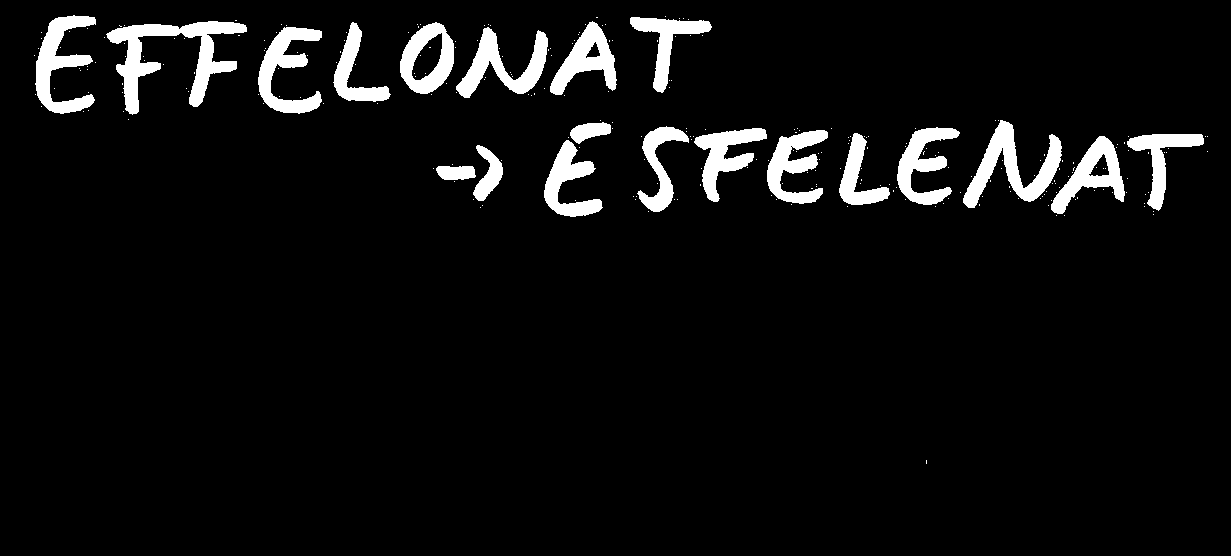 EFFELONAT
-> ESFELENAT